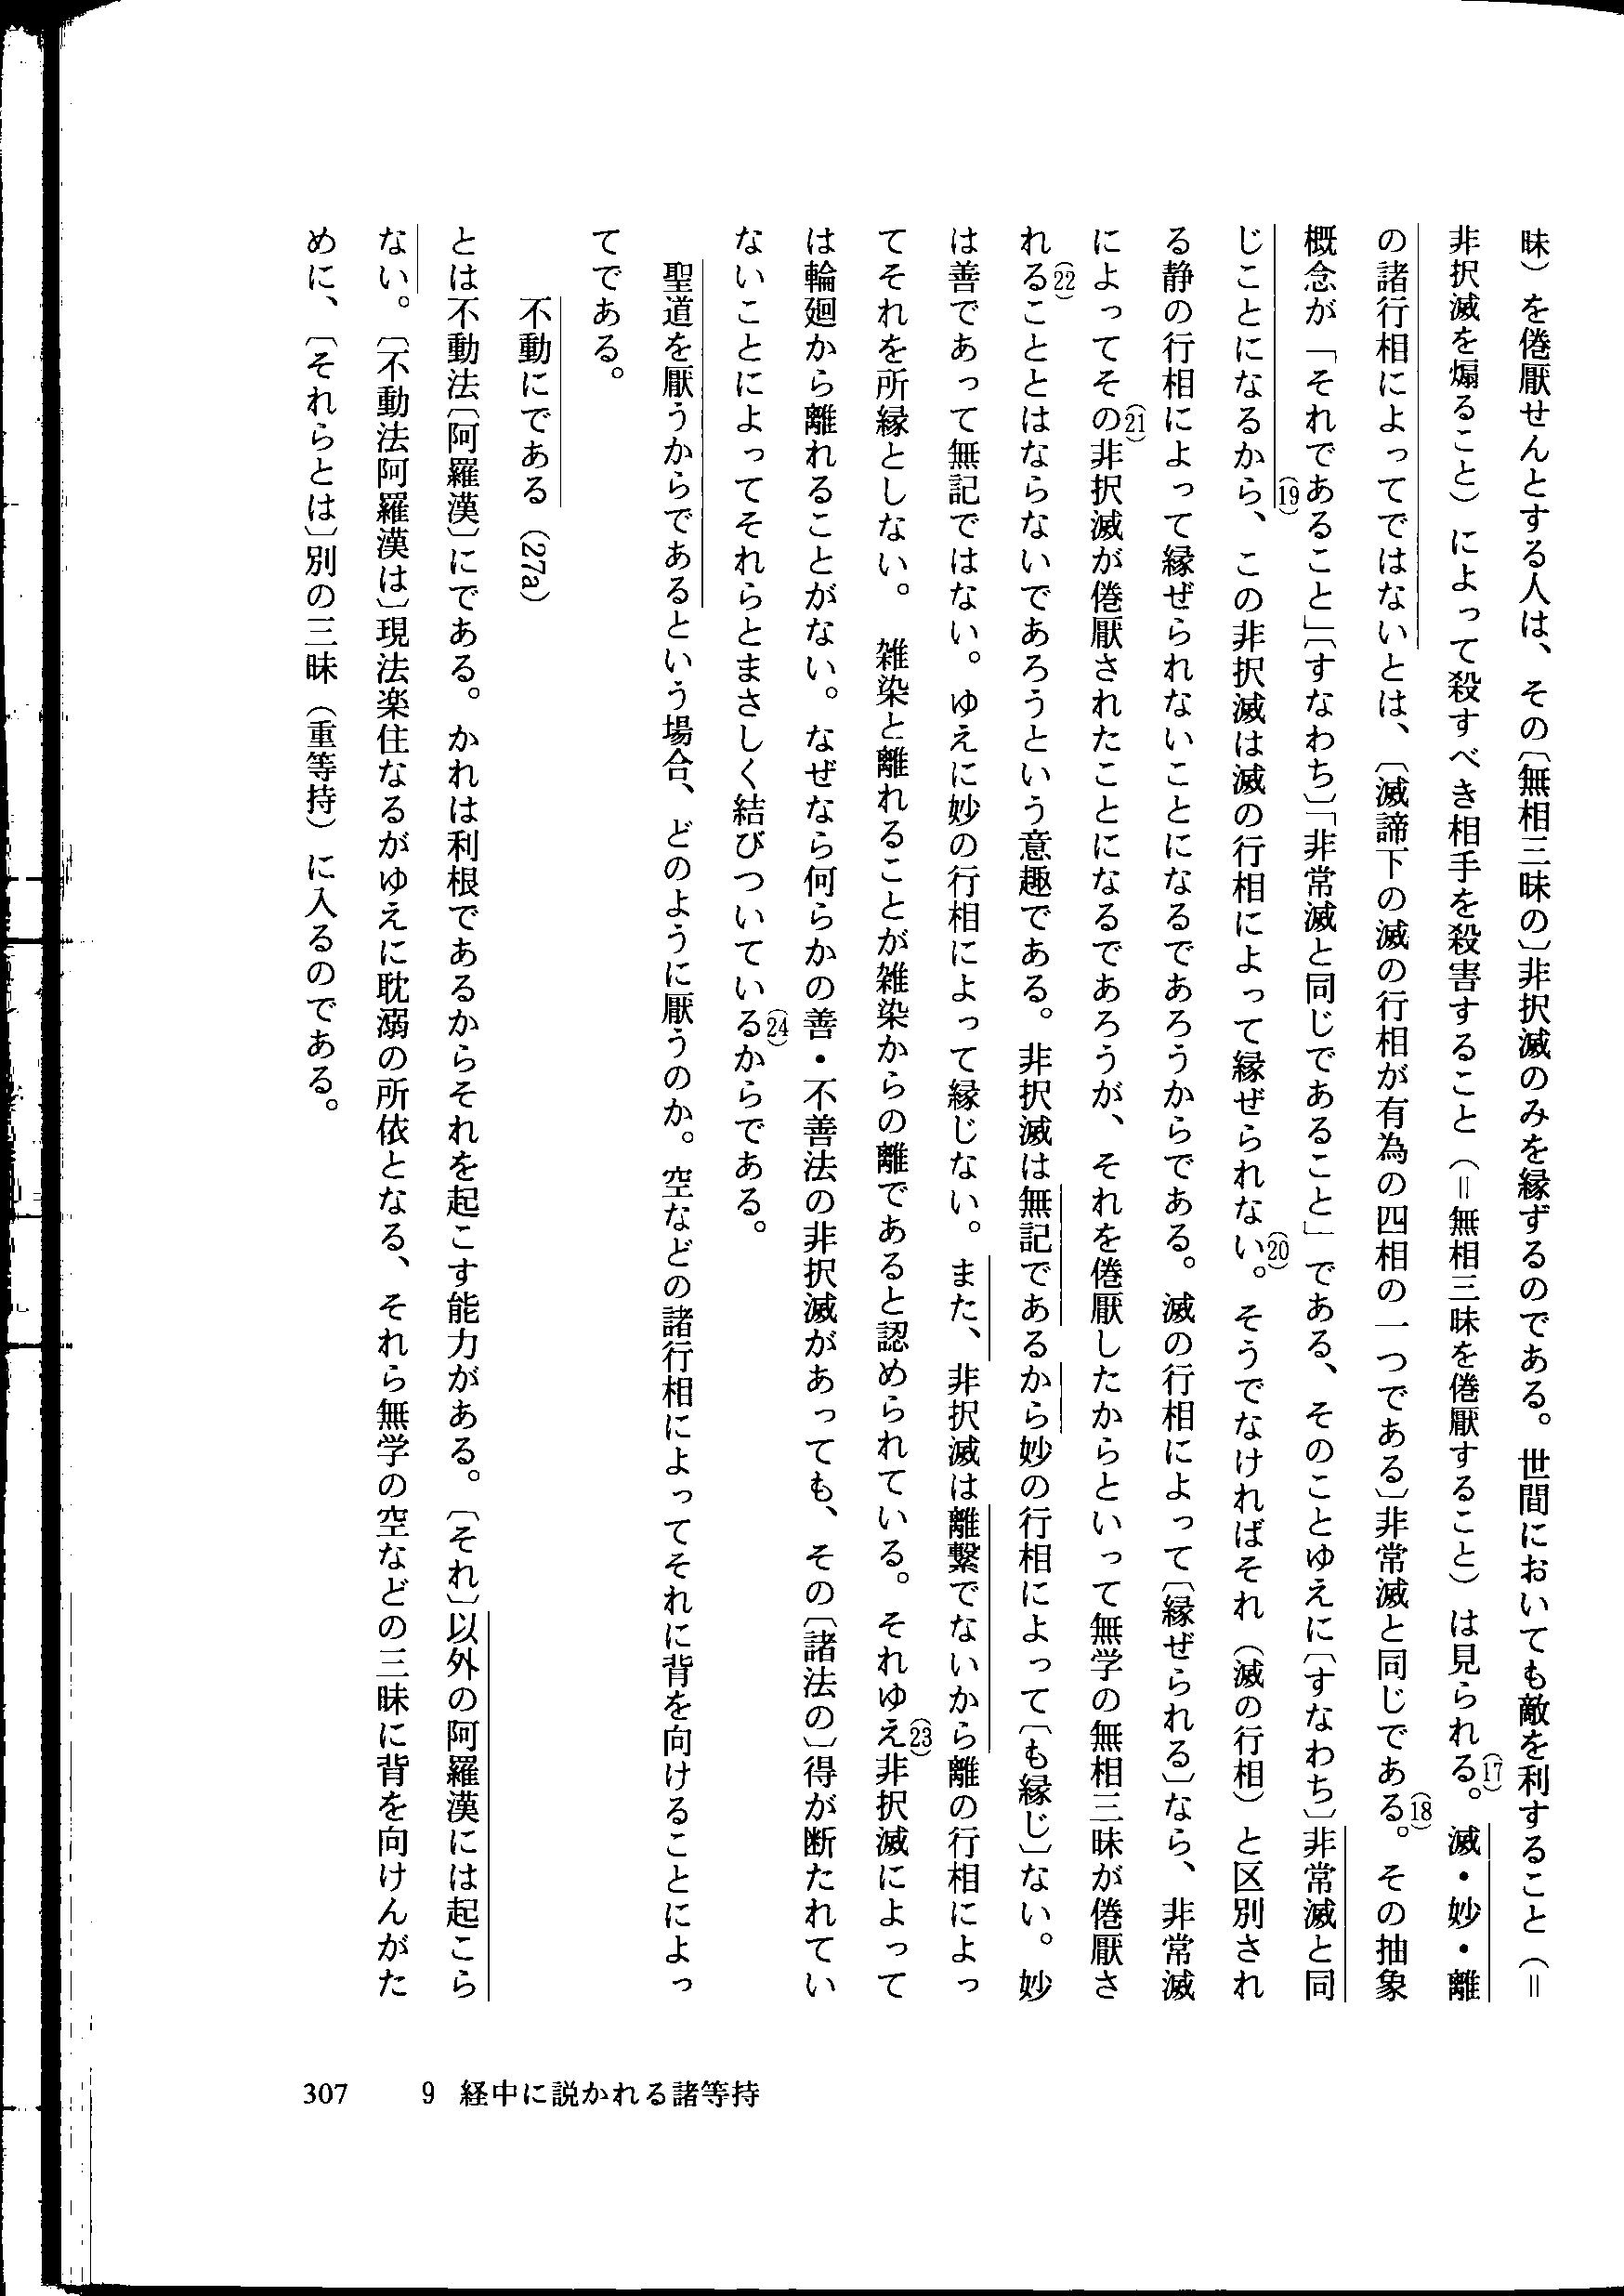 昧）を倦厭せんとする人は、その〔無相三昧の〕非択滅のみを縁ずるのである。世間においても敵を利すること（＝
非択滅を煽ること）によって殺すべき相手を殺害すること（＝無相三昧を倦厭すること）は見られる(17)。滅・妙・離
の諸行相によってではないとは、〔滅諦下の滅の行相が有為の四相の一つである〕非常滅と同じである(18)。その抽象
概念が「それであること」〔すなわち〕「非常滅と同じであること」である、そのことゆえに〔すなわち〕非常滅と同
じことになるから(19)、この非択滅は滅の行相によって縁ぜられない(20)。そうでなければそれ（滅の行相）と区別され
る静の行相によって縁ぜられないことになるであろうからである。滅の行相によって〔縁ぜられる〕なら、非常滅
によってその(21)非択滅が倦厭されたことになるであろうが、それを倦厭したからといって無学の無相三昧が倦厭さ
れる(22)こととはならないであろうという意趣である。非択滅は無記であるから妙の行相によって〔も縁じ〕ない。妙
は善であって無記ではない。ゆえに妙の行相によって縁じない。また、非択滅は離繋でないから離の行相によっ
てそれを所縁としない。雑染と離れることが雑染からの離であると認められている。それゆえ(23)非択滅によって
は輪廻から離れることがない。なぜなら何らかの善・不善法の非択滅があっても、その〔諸法の〕得が断たれてい
ないことによってそれらとまさしく結びついている(24)からである。
聖道を厭うからであるという場合、どのように厭うのか。空などの諸行相によってそれに背を向けることによっ
てである。
不動にである（27a）
とは不動法〔阿羅漢〕にである。かれは利根であるからそれを起こす能力がある。〔それ〕以外の阿羅漢には起こら
ない。〔不動法阿羅漢は〕現法楽住なるがゆえに耽溺の所依となる、それら無学の空などの三昧に背を向けんがた
めに、〔それらとは〕別の三昧（重等持）に入るのである。
307　9 経中に説かれる諸等持